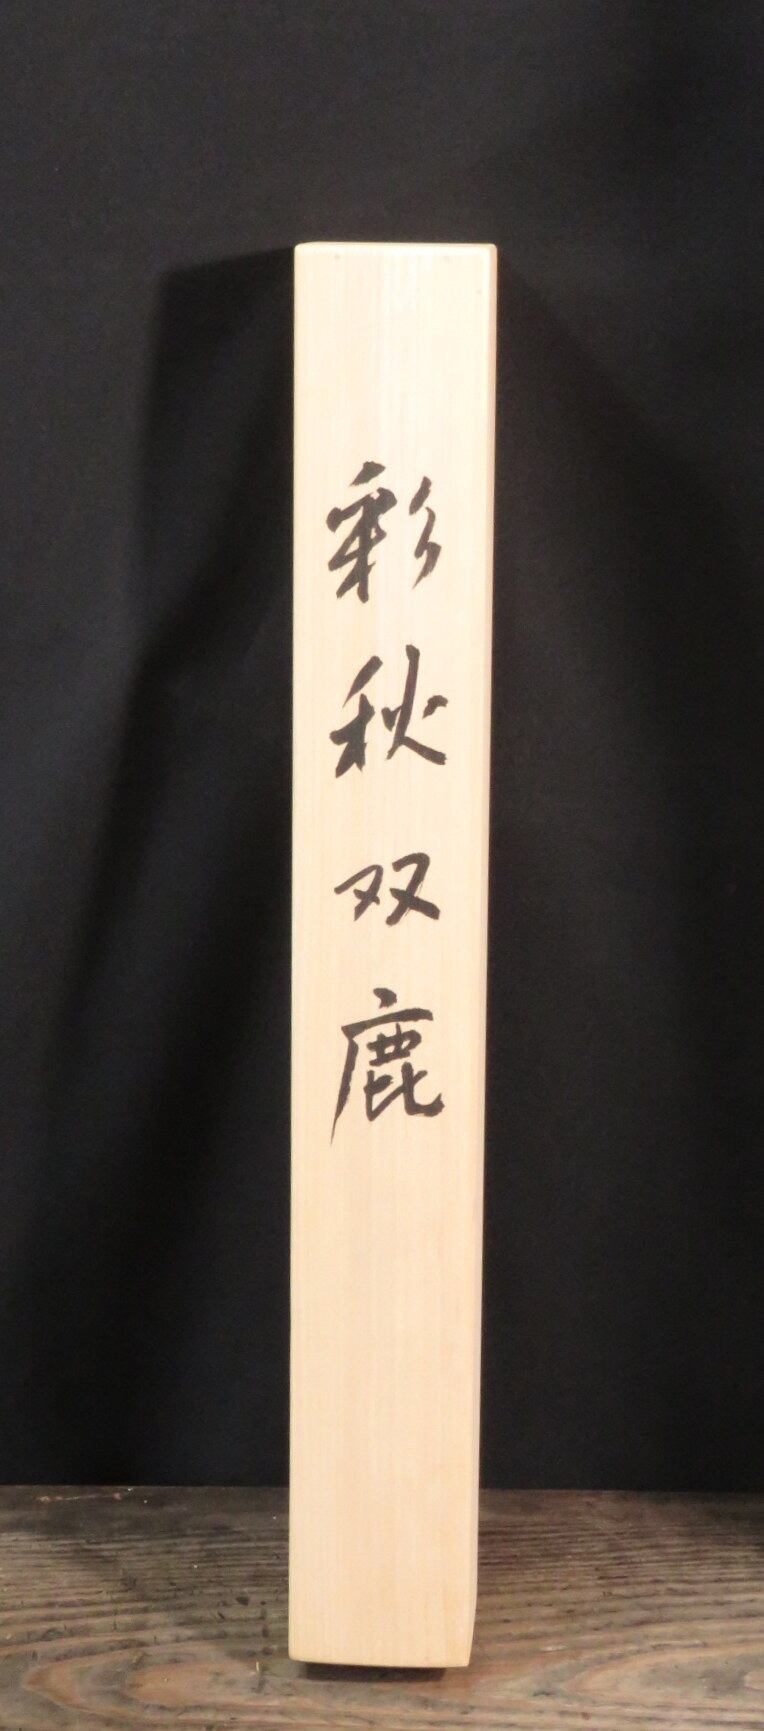 彩秋双鹿